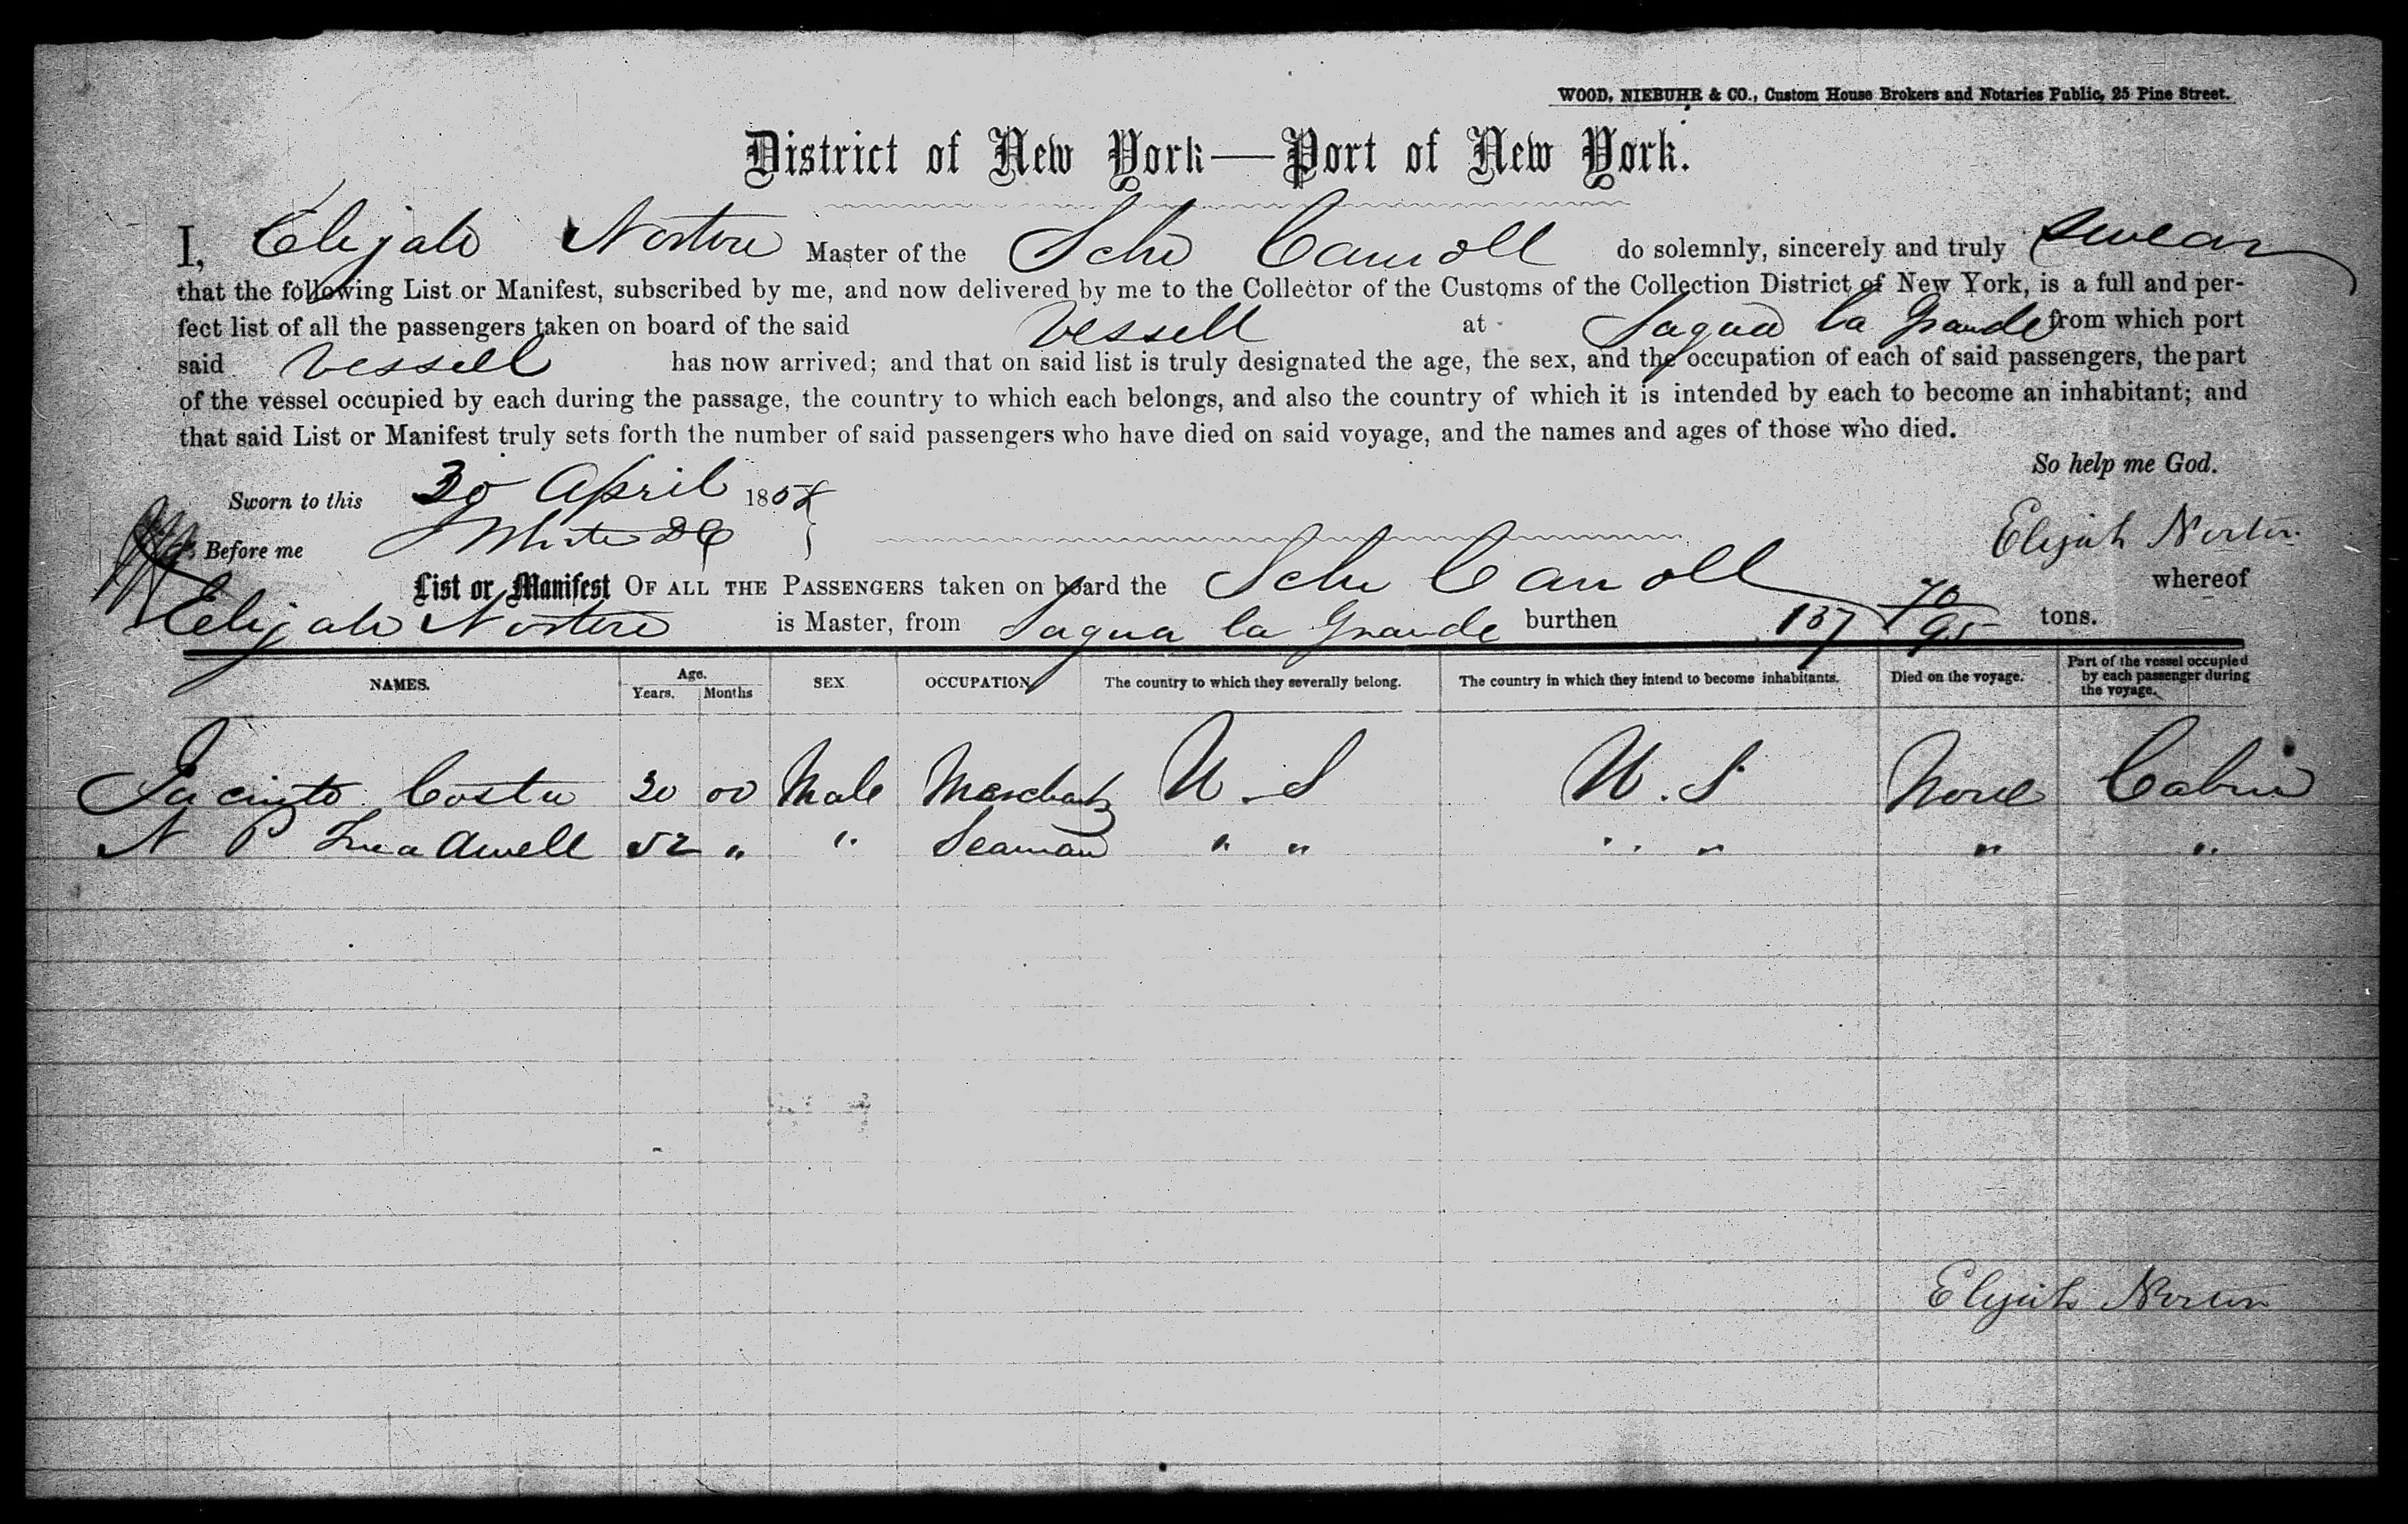 WOOD, NIEBUHR & CO., Custom House Brokers and Notaries Public, 25 Pine Street.
District of New York—Port of New York.
I, Elijah Norton Master of the Schr Carroll do solemnly, sincerely and truly swear
that the following List or Manifest, subscribed by me, and now delivered by me to the Collector of the Customs of the Collection District of New York, is a full and per-
fect list of all the passengers taken on board of the said Vessell at Sagua la Grande from which port
said Vessell has now arrived; and that on said list is truly designated the age, the sex, and the occupation of each of said passengers, the part
of the vessel occupied by each during the passage, the country to which each belongs, and also the country of which it is intended by each to become an inhabitant; and
that said List or Manifest truly sets forth the number of said passengers who have died on said voyage, and the names and ages of those who died.
So help me God.
Sworn to this 30 April 1858
Before me White DC Elijah Norton
List or Manifest OF ALL THE PASSENGERS taken on board the Schr Carroll whereof
Elijah Norton is Master, from Sagua la Grande burthen 137 70/95 tons.
NAMES. Age. Years. Months SEX OCCUPATION The country to which they severally belong. The country in which they intend to become inhabitants. Died on the voyage. Part of the vessel occupied by each passenger during the voyage.
Jacinto Costa 30 00 Male Merchant U S U. S None Cabin
N P 52 " " Seaman " " " " " "
Elijah Norton